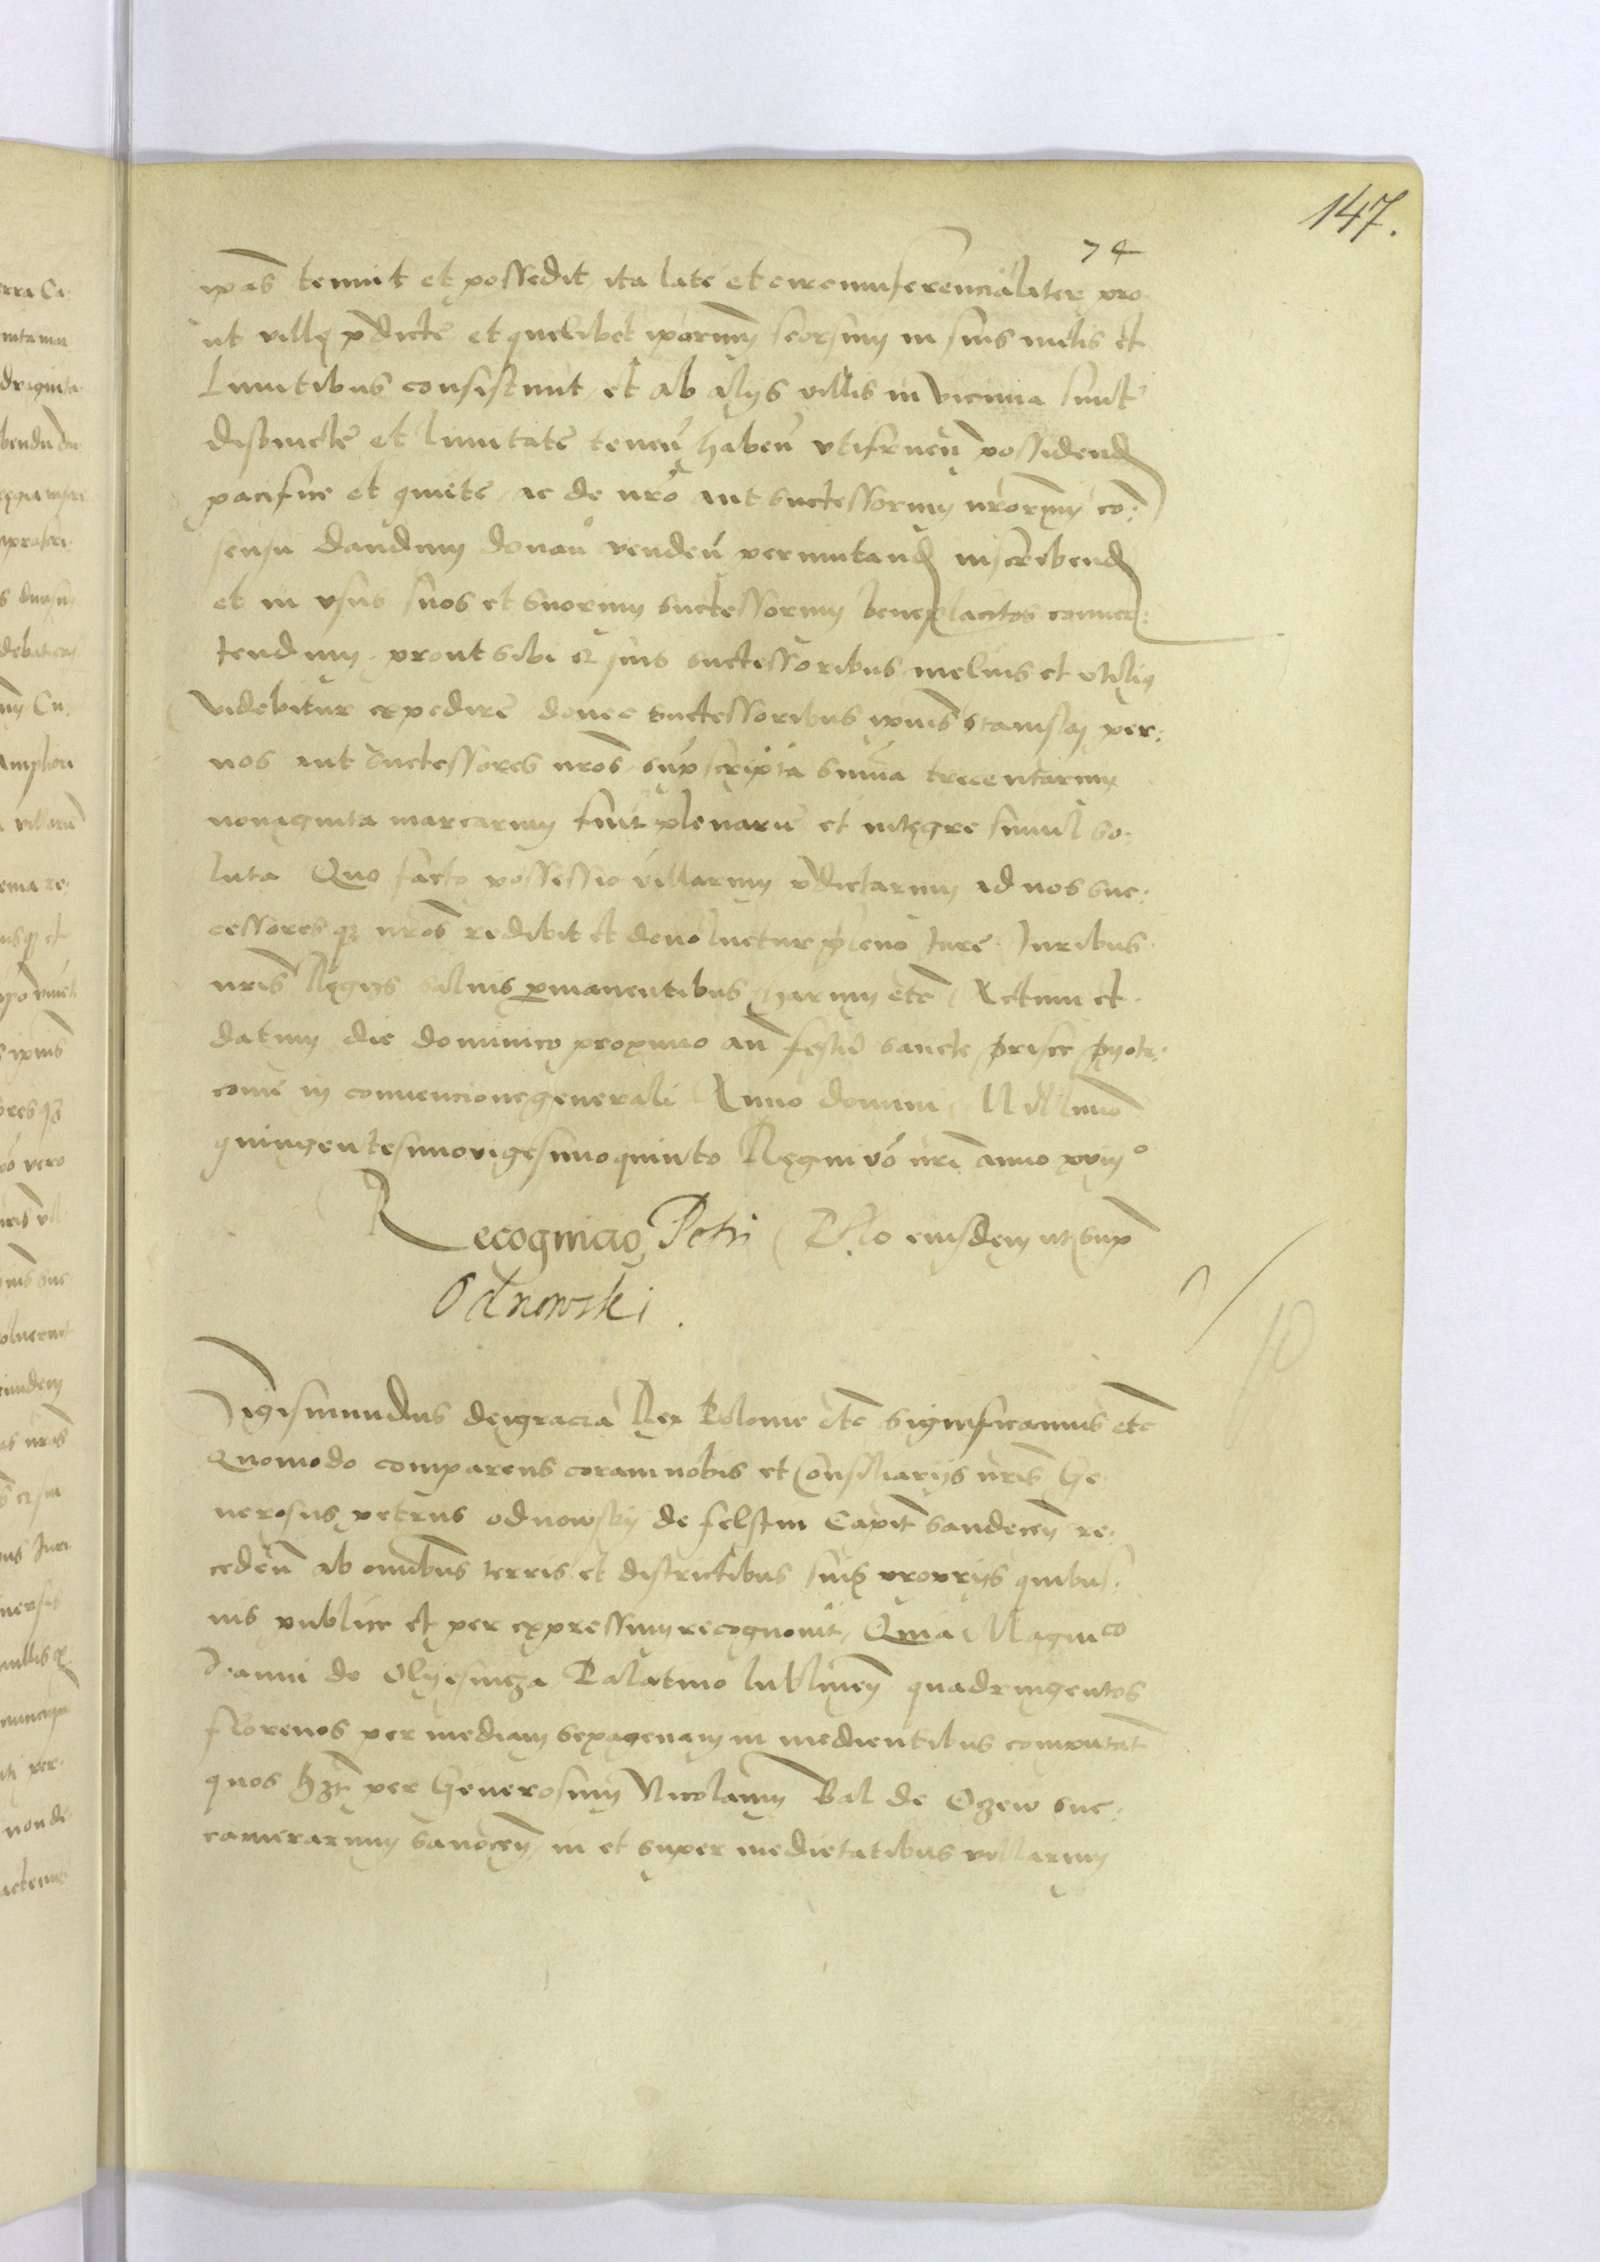 147.
74
ipas tenuit et possedit ita late et circumferencialiter pro
ut ville pdicte et quelibet iporum seorsum in suis metis et
Limitibus consistunt et ab alijs villis in vicinia sunt
distincte et limitate teneñ habeñ utifrueñ possidend
pacifice et quiete ac de nro aut successorum nrorum co:
sensu dandum donañ vendeñ permutand inscribend
et in usus suos et suorum successorum beneplacitos conuer:
tendum prout sibi et suis successoribus melius et utilius
videbitur expedire donec successoribus ipius Stanislaj per:
nos aut Successores nros supscripta suma trecentarum
nonaginta marcarum fuit plenarie et integre simul so:
luta Quo facto possessio villarum pdictarum ad nos suc:
cessores q3 nros redibit et deuoluetur pleno iure Juribus
nris Regijs saluis pmanentibus Harum etc Actum et
datum die dominico proximo añ festū sancte prisce pyotr:
coüie in conuencione generali Anno domini Millimo
quingentesimo vigesimo quinto Regni vo nri anno xviijo
Recognicio Petri Rlo eiusdem ut sup
Odnowski.
Sigismundus dei gracia Rex Polonie etc Significamus etc
Quomodo comparens coram nobis et Consiliarijs nris Ge
nerosus petrus odnowskij de felstin Capit sandeceñ re:
cedeñ ab omibus terris et districtibus suis proprijs quibus:
uis publice et per expressum recognouit Quia Magnico
Joanni de Olijesnicza Palatino lublineñ quadringentos
florenos per mediam sexagenam in medientibus computat
quos h3 per Generosum Nicolaum Bal de Oczew suc:
camerarium sanoceñ in et super medietatibus villarum